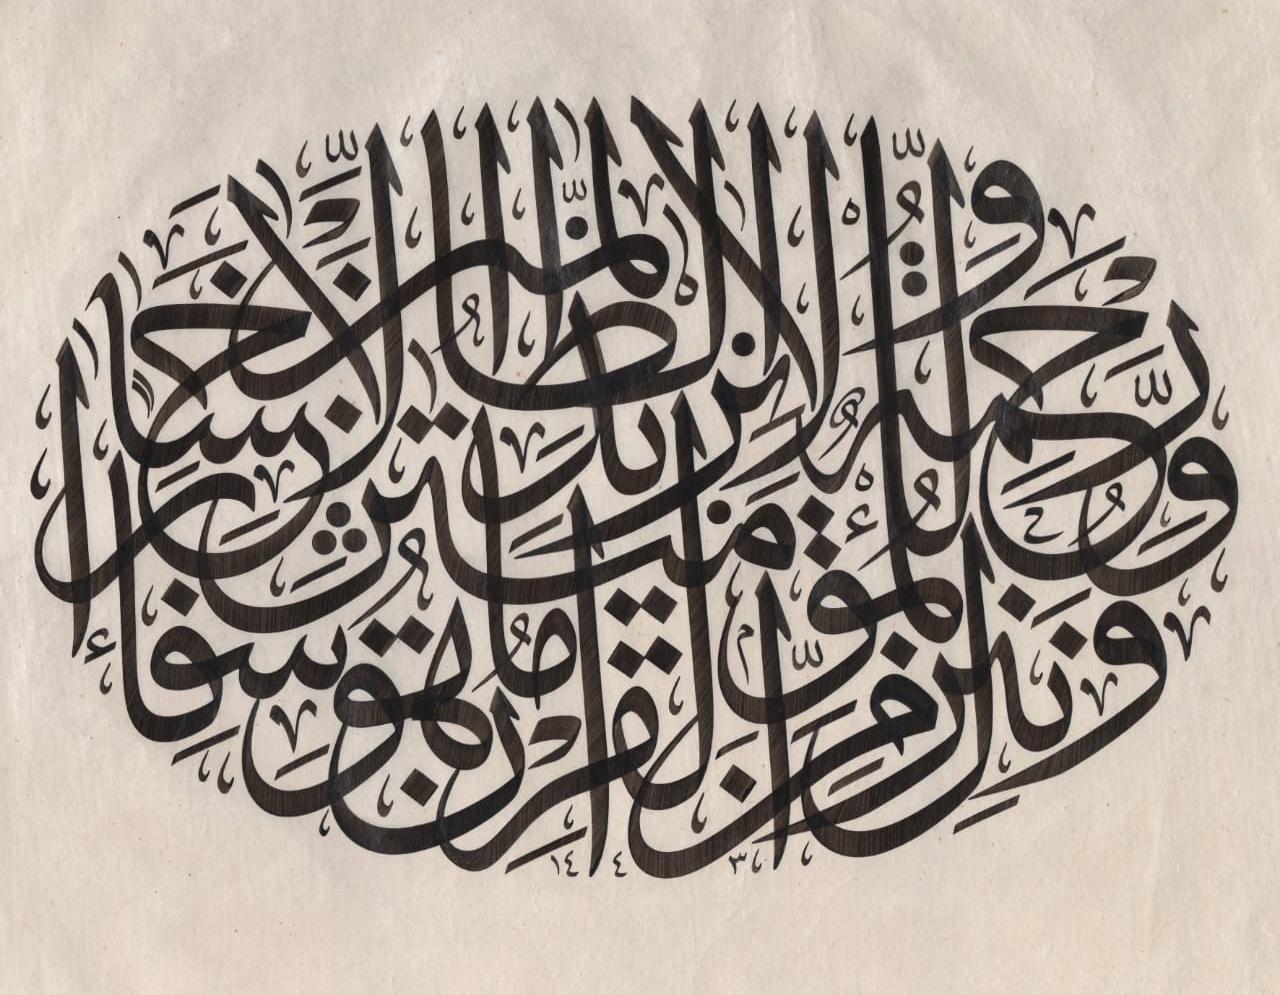 وَنُنَزِّلُ مِنَ الْقُرْآنِ مَا هُوَ شِفَاءٌ وَرَحْمَةٌ لِلْمُؤْمِنِينَ وَلَا يَزِيدُ الظَّالِمِينَ إِلَّا خَسَارًا
١٤٤٣